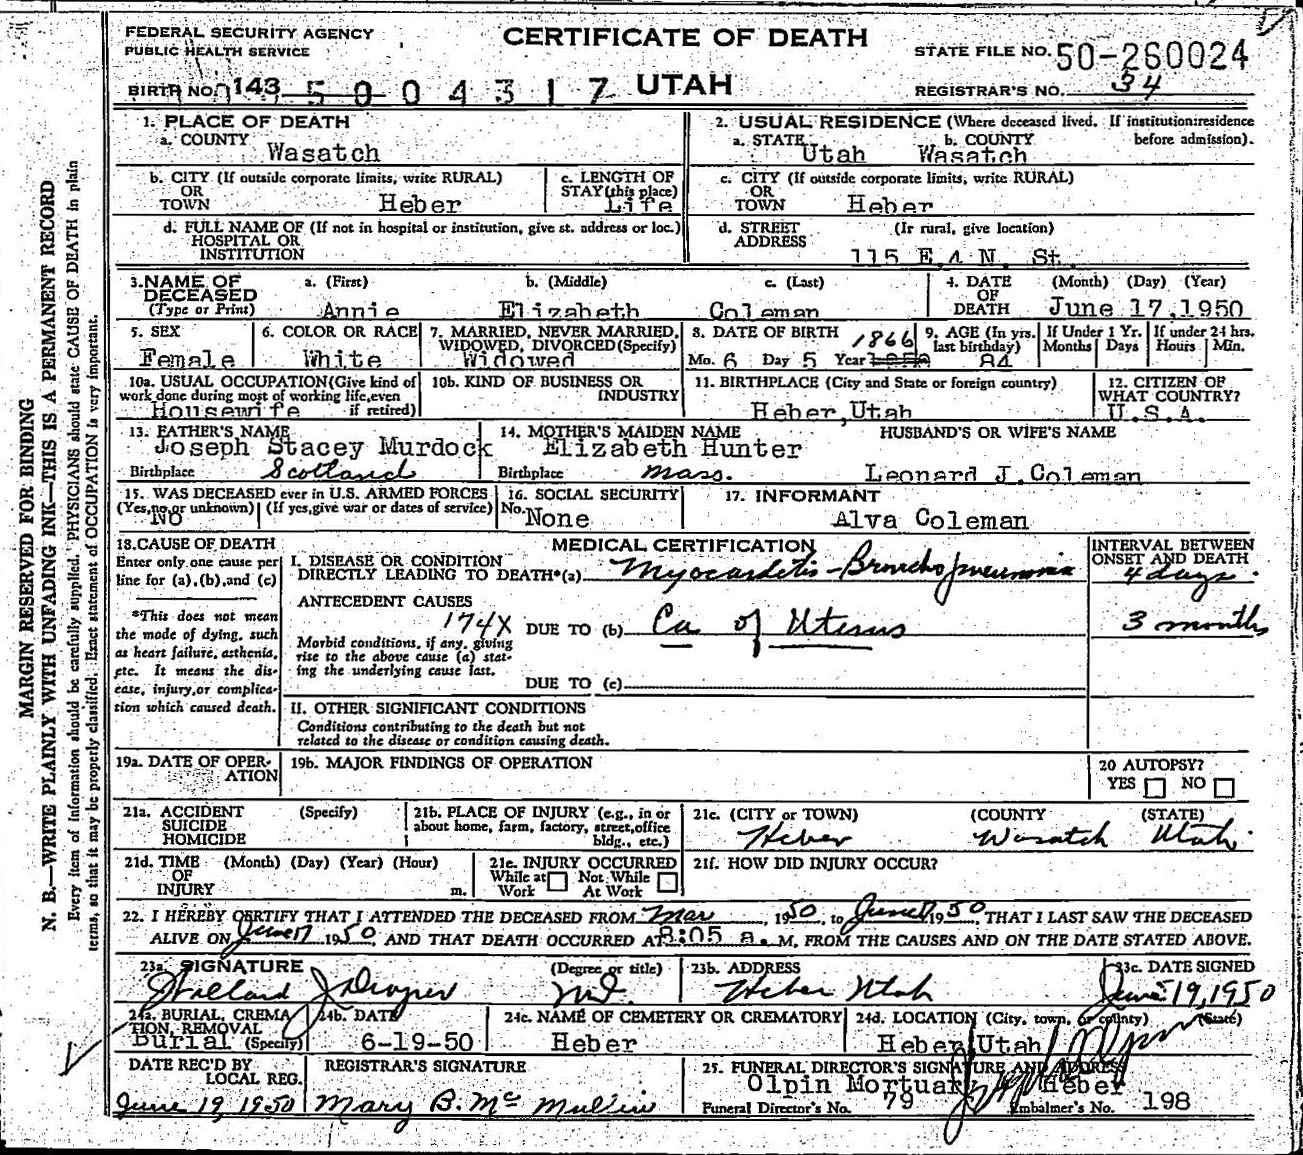 FEDERAL SECURITY AGENCY
PUBLIC HEALTH SERVICE
CERTIFICATE OF DEATH
UTAH
STATE FILE NO. 50-260024
BIRTH NO. 143 5 0 0 4 3 1 7
REGISTRAR'S NO. 34
MARGIN RESERVED FOR BINDING
N. B.—WRITE PLAINLY WITH UNFADING INK—THIS IS A PERMANENT RECORD
Every item of information should be carefully supplied. PHYSICIANS should state CAUSE OF DEATH in plain
terms, so that it may be properly classified. Exact statement of OCCUPATION is very important.
1. PLACE OF DEATH
a. COUNTY
Wasatch
2. USUAL RESIDENCE (Where deceased lived. If institution: residence before admission).
a. STATE b. COUNTY
Utah Wasatch
b. CITY (If outside corporate limits, write RURAL)
OR
TOWN Heber
c. LENGTH OF
STAY (this place)
Life
c. CITY (If outside corporate limits, write RURAL)
OR
TOWN Heber
d. FULL NAME OF (If not in hospital or institution, give st. address or loc.)
HOSPITAL OR
INSTITUTION
d. STREET (If rural, give location)
ADDRESS
115 E 4 N. St.
3. NAME OF
DECEASED
(Type or Print)
a. (First) b. (Middle) c. (Last)
Annie Elizabeth Coleman
4. DATE
OF
DEATH
(Month) (Day) (Year)
June 17,1950
5. SEX
Female
6. COLOR OR RACE
White
7. MARRIED, NEVER MARRIED,
WIDOWED, DIVORCED (Specify)
Widowed
8. DATE OF BIRTH 1866
Mo. 6 Day 5 Year
9. AGE (In yrs.
last birthday)
84
If Under 1 Yr.
Months Days
If under 24 hrs.
Hours Min.
10a. USUAL OCCUPATION (Give kind of
work done during most of working life, even
if retired)
Housewife
10b. KIND OF BUSINESS OR
INDUSTRY
11. BIRTHPLACE (City and State or foreign country)
Heber,Utah
12. CITIZEN OF
WHAT COUNTRY?
U.S.A.
13. FATHER'S NAME
Joseph Stacey Murdock
Birthplace Scotland
14. MOTHER'S MAIDEN NAME
Elizabeth Hunter
Birthplace Mass.
HUSBAND'S OR WIFE'S NAME
Leonard J.Coleman
15. WAS DECEASED ever in U.S. ARMED FORCES
(Yes, no or unknown) (If yes, give war or dates of service)
No
16. SOCIAL SECURITY
No. None
17. INFORMANT
Alva Coleman
18. CAUSE OF DEATH
Enter only one cause per
line for (a), (b), and (c)
*This does not mean
the mode of dying, such
as heart failure, asthenia,
etc. It means the dis-
ease, injury, or complica-
tion which caused death.
MEDICAL CERTIFICATION
I. DISEASE OR CONDITION
DIRECTLY LEADING TO DEATH*(a) Myocarditis - Bronchopneumonia
ANTECEDENT CAUSES
174X DUE TO (b) Ca of Uterus
Morbid conditions, if any, giving
rise to the above cause (a) stat-
ing the underlying cause last.
DUE TO (c)
II. OTHER SIGNIFICANT CONDITIONS
Conditions contributing to the death but not
related to the disease or condition causing death.
INTERVAL BETWEEN
ONSET AND DEATH
4 days
3 months
19a. DATE OF OPER-
ATION
19b. MAJOR FINDINGS OF OPERATION
20 AUTOPSY?
YES NO
21a. ACCIDENT (Specify)
SUICIDE
HOMICIDE
21b. PLACE OF INJURY (e.g., in or
about home, farm, factory, street, office
bldg., etc.)
21c. (CITY or TOWN) (COUNTY) (STATE)
Heber Wasatch Utah
21d. TIME (Month) (Day) (Year) (Hour)
OF
INJURY m.
21e. INJURY OCCURRED
While at Not While
Work At Work
21f. HOW DID INJURY OCCUR?
22. I HEREBY CERTIFY THAT I ATTENDED THE DECEASED FROM Mar, 1950, to June 17 1950, THAT I LAST SAW THE DECEASED
ALIVE ON June 17 1950, AND THAT DEATH OCCURRED AT 8:05 a. M, FROM THE CAUSES AND ON THE DATE STATED ABOVE.
23a. SIGNATURE (Degree or title)
M.D.
23b. ADDRESS
Heber Utah
23c. DATE SIGNED
June 19, 1950
24a. BURIAL, CREMA
TION, REMOVAL
Burial (Specify)
24b. DATE
6-19-50
24c. NAME OF CEMETERY OR CREMATORY
Heber
24d. LOCATION (City, town, or county) (State)
Heber Utah
DATE REC'D BY
LOCAL REG.
June 19, 1950
REGISTRAR'S SIGNATURE
Mary B. McMullin
25. FUNERAL DIRECTOR'S SIGNATURE AND ADDRESS
Olpin Mortuary Heber
Funeral Director's No. 79
Embalmer's No. 198